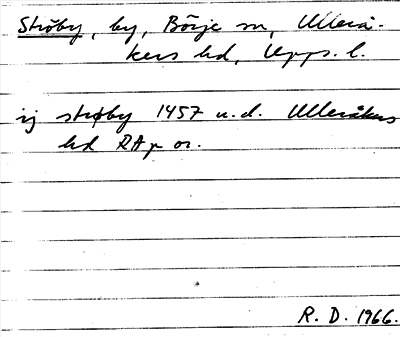 Ströby, by, Börje sn, Ullerå-
kers hd, Upps. l.
ij strøby 1457 u.d. Ulleråkers
hd RAp or.
R. D. 1966.